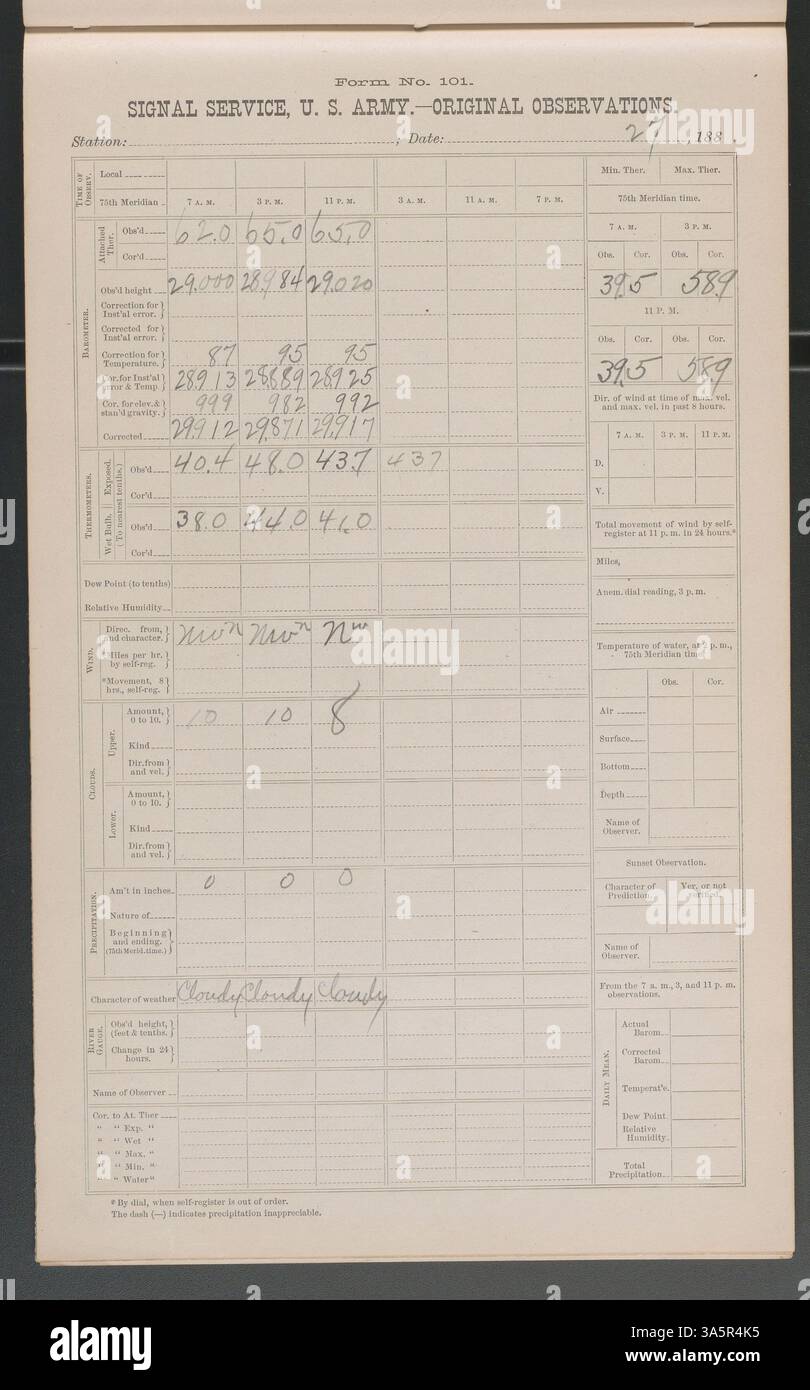 Form No. 101.
SIGNAL SERVICE, U. S. ARMY.—ORIGINAL OBSERVATIONS.
Station: ; Date: 27, 188 .
TIME OF OBSERV.
Local
75th Meridian 7 A. M. 3 P. M. 11 P. M. 3 A. M. 11 A. M. 7 P. M.
BAROMETER.
Attached Ther.
Obs'd 62.0 65.0 65.0
Cor'd
Obs'd height 29.000 28.984 29.020
Correction for Inst'al error.
Corrected for Inst'al error.
Correction for Temperature. 87 95 95
Cor. for Inst'al error & Temp. 28.913 28.889 28.925
Cor. for elev. & stan'd gravity. 999 982 992
Corrected 29.912 29.871 29.917
THERMOMETERS.
(To nearest tenths.)
Exposed.
Obs'd 40.4 48.0 43.7 43.7
Cor'd
Wet Bulb.
Obs'd 38.0 44.0 41.0
Cor'd
Dew Point (to tenths)
Relative Humidity
WIND.
Direc. from, and character. nwn nwn nw
Miles per hr. by self-reg.
*Movement, 8 hrs., self-reg.
CLOUDS.
Upper.
Amount, 0 to 10. 10 10 8
Kind
Dir. from and vel.
Lower.
Amount, 0 to 10.
Kind
Dir. from and vel.
PRECIPITATION.
Am't in inches 0 0 0
Nature of
Beginning and ending. (75th Merid. time.)
Character of weather Cloudy Cloudy Cloudy
RIVER GAUGE.
Obs'd height, (feet & tenths.)
Change in 24 hours.
Name of Observer
Cor. to At. Ther
" " Exp. "
" " Wet "
" " Max. "
" " Min. "
" " Water "
Min. Ther. Max. Ther.
75th Meridian time.
7 A. M. 3 P. M.
Obs. Cor. Obs. Cor.
39.5 58.9
11 P. M.
Obs. Cor. Obs. Cor.
39.5 58.9
Dir. of wind at time of max. vel. and max. vel. in past 8 hours.
7 A. M. 3 P. M. 11 P. M.
D.
V.
Total movement of wind by self-register at 11 p. m. in 24 hours.*
Miles,
Anem. dial reading, 3 p. m.
Temperature of water, at 2 p. m., 75th Meridian time.
Obs. Cor.
Air
Surface
Bottom
Depth
Name of Observer.
Sunset Observation.
Character of Prediction. Ver. or not verified.
Name of Observer.
From the 7 a. m., 3, and 11 p. m. observations.
DAILY MEAN.
Actual Barom.
Corrected Barom.
Temperat'e.
Dew Point.
Relative Humidity.
Total Precipitation
* By dial, when self-register is out of order.
The dash (—) indicates precipitation inappreciable.
alamy
alamy
alamy
Image ID: 3A5R4K5
www.alamy.com